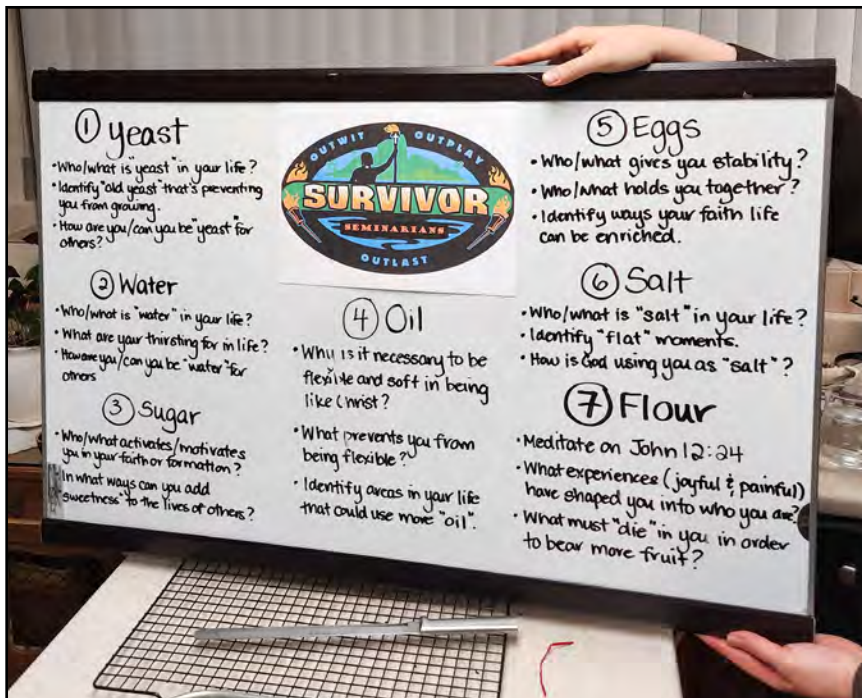 ① Yeast
• Who/what is "yeast" in your life?
• Identify "old yeast" that's preventing
you from growing.
• How are you/can you be "yeast" for
others?
② Water
• Who/what is "water" in your life?
• What are your thirsting for in life?
• How are you/can you be "water" for
others
③ Sugar
• Who/what activates/motivates
you in your faith or formation?
In what ways can you add
sweetness" to the lives of others?
OUTWIT OUTPLAY
SURVIVOR
SEMINARIANS
OUTLAST
④ Oil
• Why is it necessary to be
flexible and soft in being
like Christ?
• What prevents you from
being flexible?
• Identify areas in your life
that could use more "oil".
⑤ Eggs
• Who/what gives you stability?
• Who/what holds you together?
• Identify ways your faith life
can be enriched.
⑥ Salt
• Who/what is "salt" in your life?
• Identify "flat" moments.
• How is God using you as "salt"?
⑦ Flour
• Meditate on John 12:24
• What experiences (joyful & painful)
have shaped you into who you are?
• What must "die" in you in order
to bear more fruit?